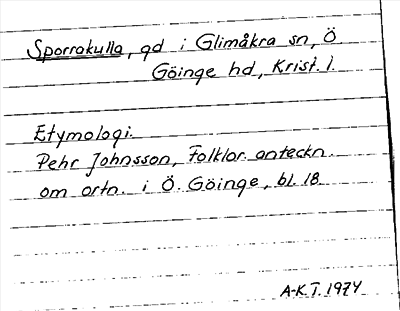 Sporrakulla, gd i Glimåkra sn, Ö
Göinge hd, Krist. l.
Etymologi.
Pehr Johnsson, Folklor. anteckn.
om ortn. i Ö. Göinge, bl. 18.
A-K.T. 1974